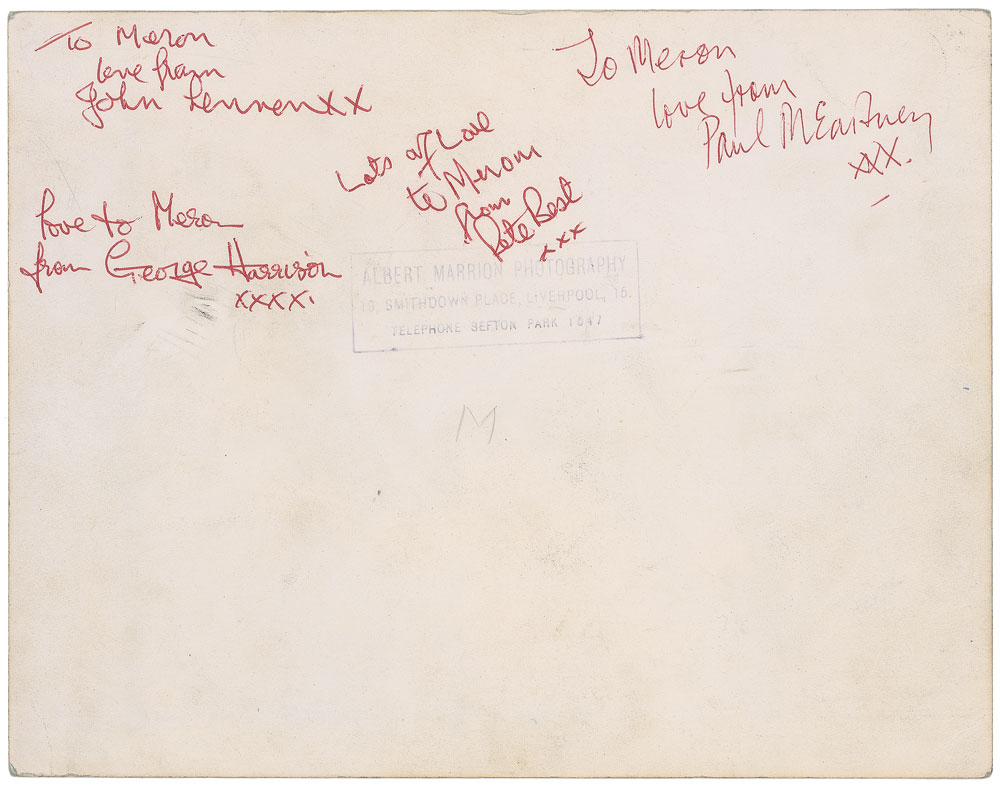 To Meron
love from
John Lennon XX
To Meron
love from
Paul McCartney
XXX.
Lots of Love
to Merom
from
Pete Best
xxx
love to Meron
from George Harrison
xxxx.
ALBERT MARRION PHOTOGRAPHY
16, SMITHDOWN PLACE, LIVERPOOL, 15.
TELEPHONE SEFTON PARK 1547
M